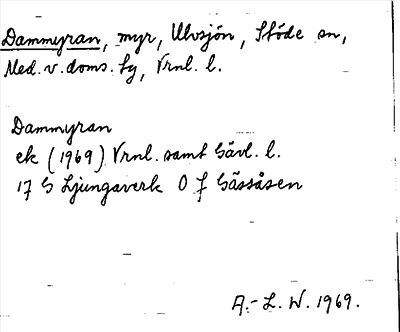 Dammyran, myr, Ulvsjön, Stöde sn,
Med. v. doms. tg, Vrnl. l.
Dammyran
ek (1969) Vrnl. samt Gävl. l.
17 G Ljungaverk 0 f Gässåsen
A.-L. W. 1969.